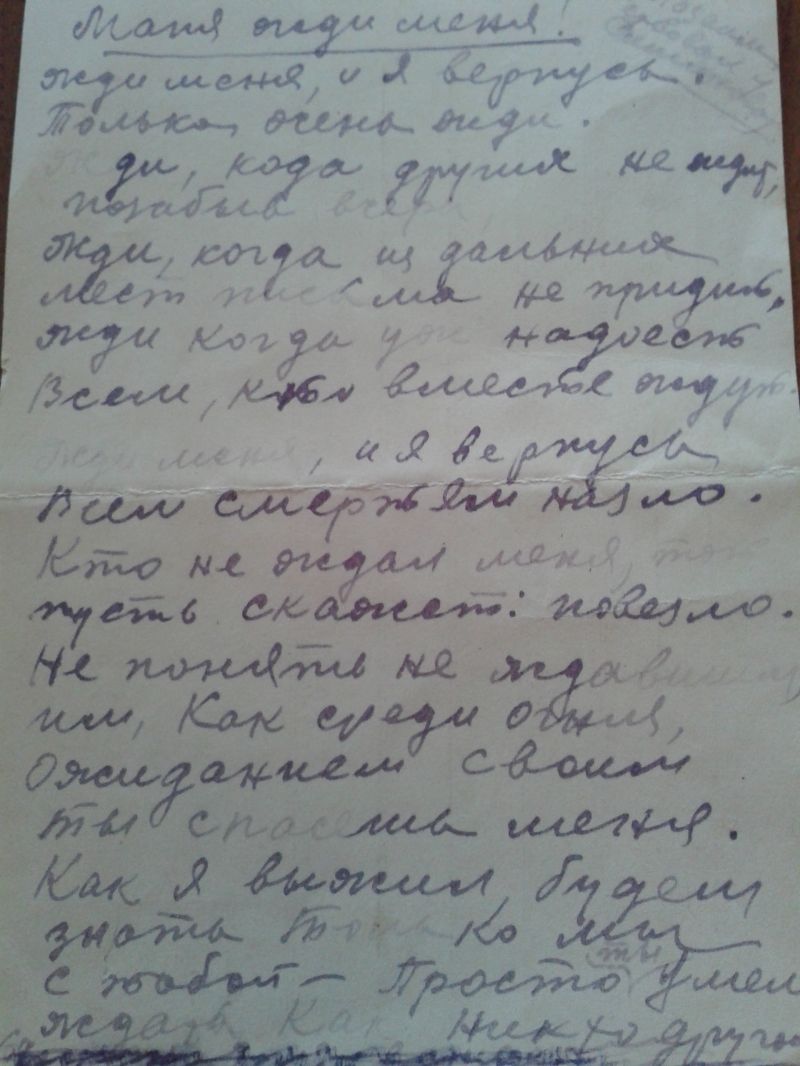 Маня жди меня!
жди меня, и я вернусь.
Только очень жди.
Жди, кода других не ждут,
позабыв вчера
Жди, когда из дальних
мест письма не придут,
жди когда уж надоест
Всем, кто вместе ждут.
Жди меня, и я вернусь
Всем смертям назло.
Кто не ждал меня, тот
пусть скажет: повезло.
Не понять не ждавшим
им, Как среди огня,
Ожиданием своим
ты спасешь меня.
Как я выжил, будем
знать только мы
с тобой — Просто ты умел
ждать Как никто другой